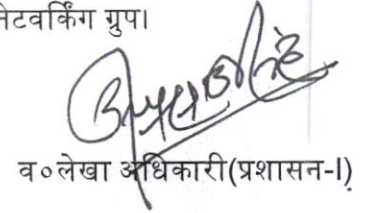 नेटवर्किंग ग्रुप।
व०लेखा अधिकारी(प्रशासन-I)